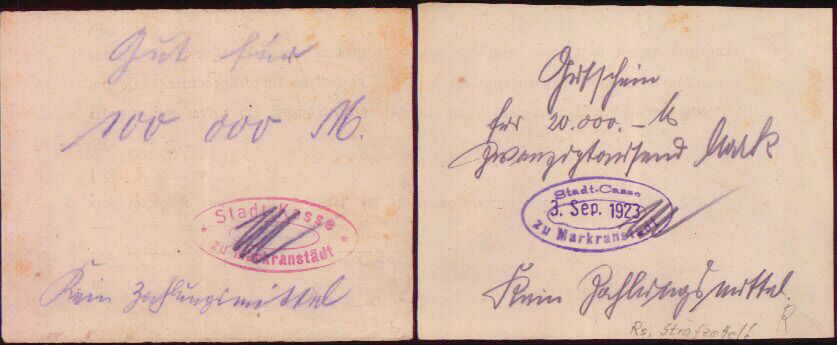 Gut für
100 000 M.
Stadt-Kasse
zu Markranstädt
Kein Zahlungsmittel
Gutschein
für 20.000.-M
Zwanzigtausend Mark
Stadt-Casse
3. Sep. 1923
zu Markranstädt
Kein Zahlungsmittel.
Rs.
R